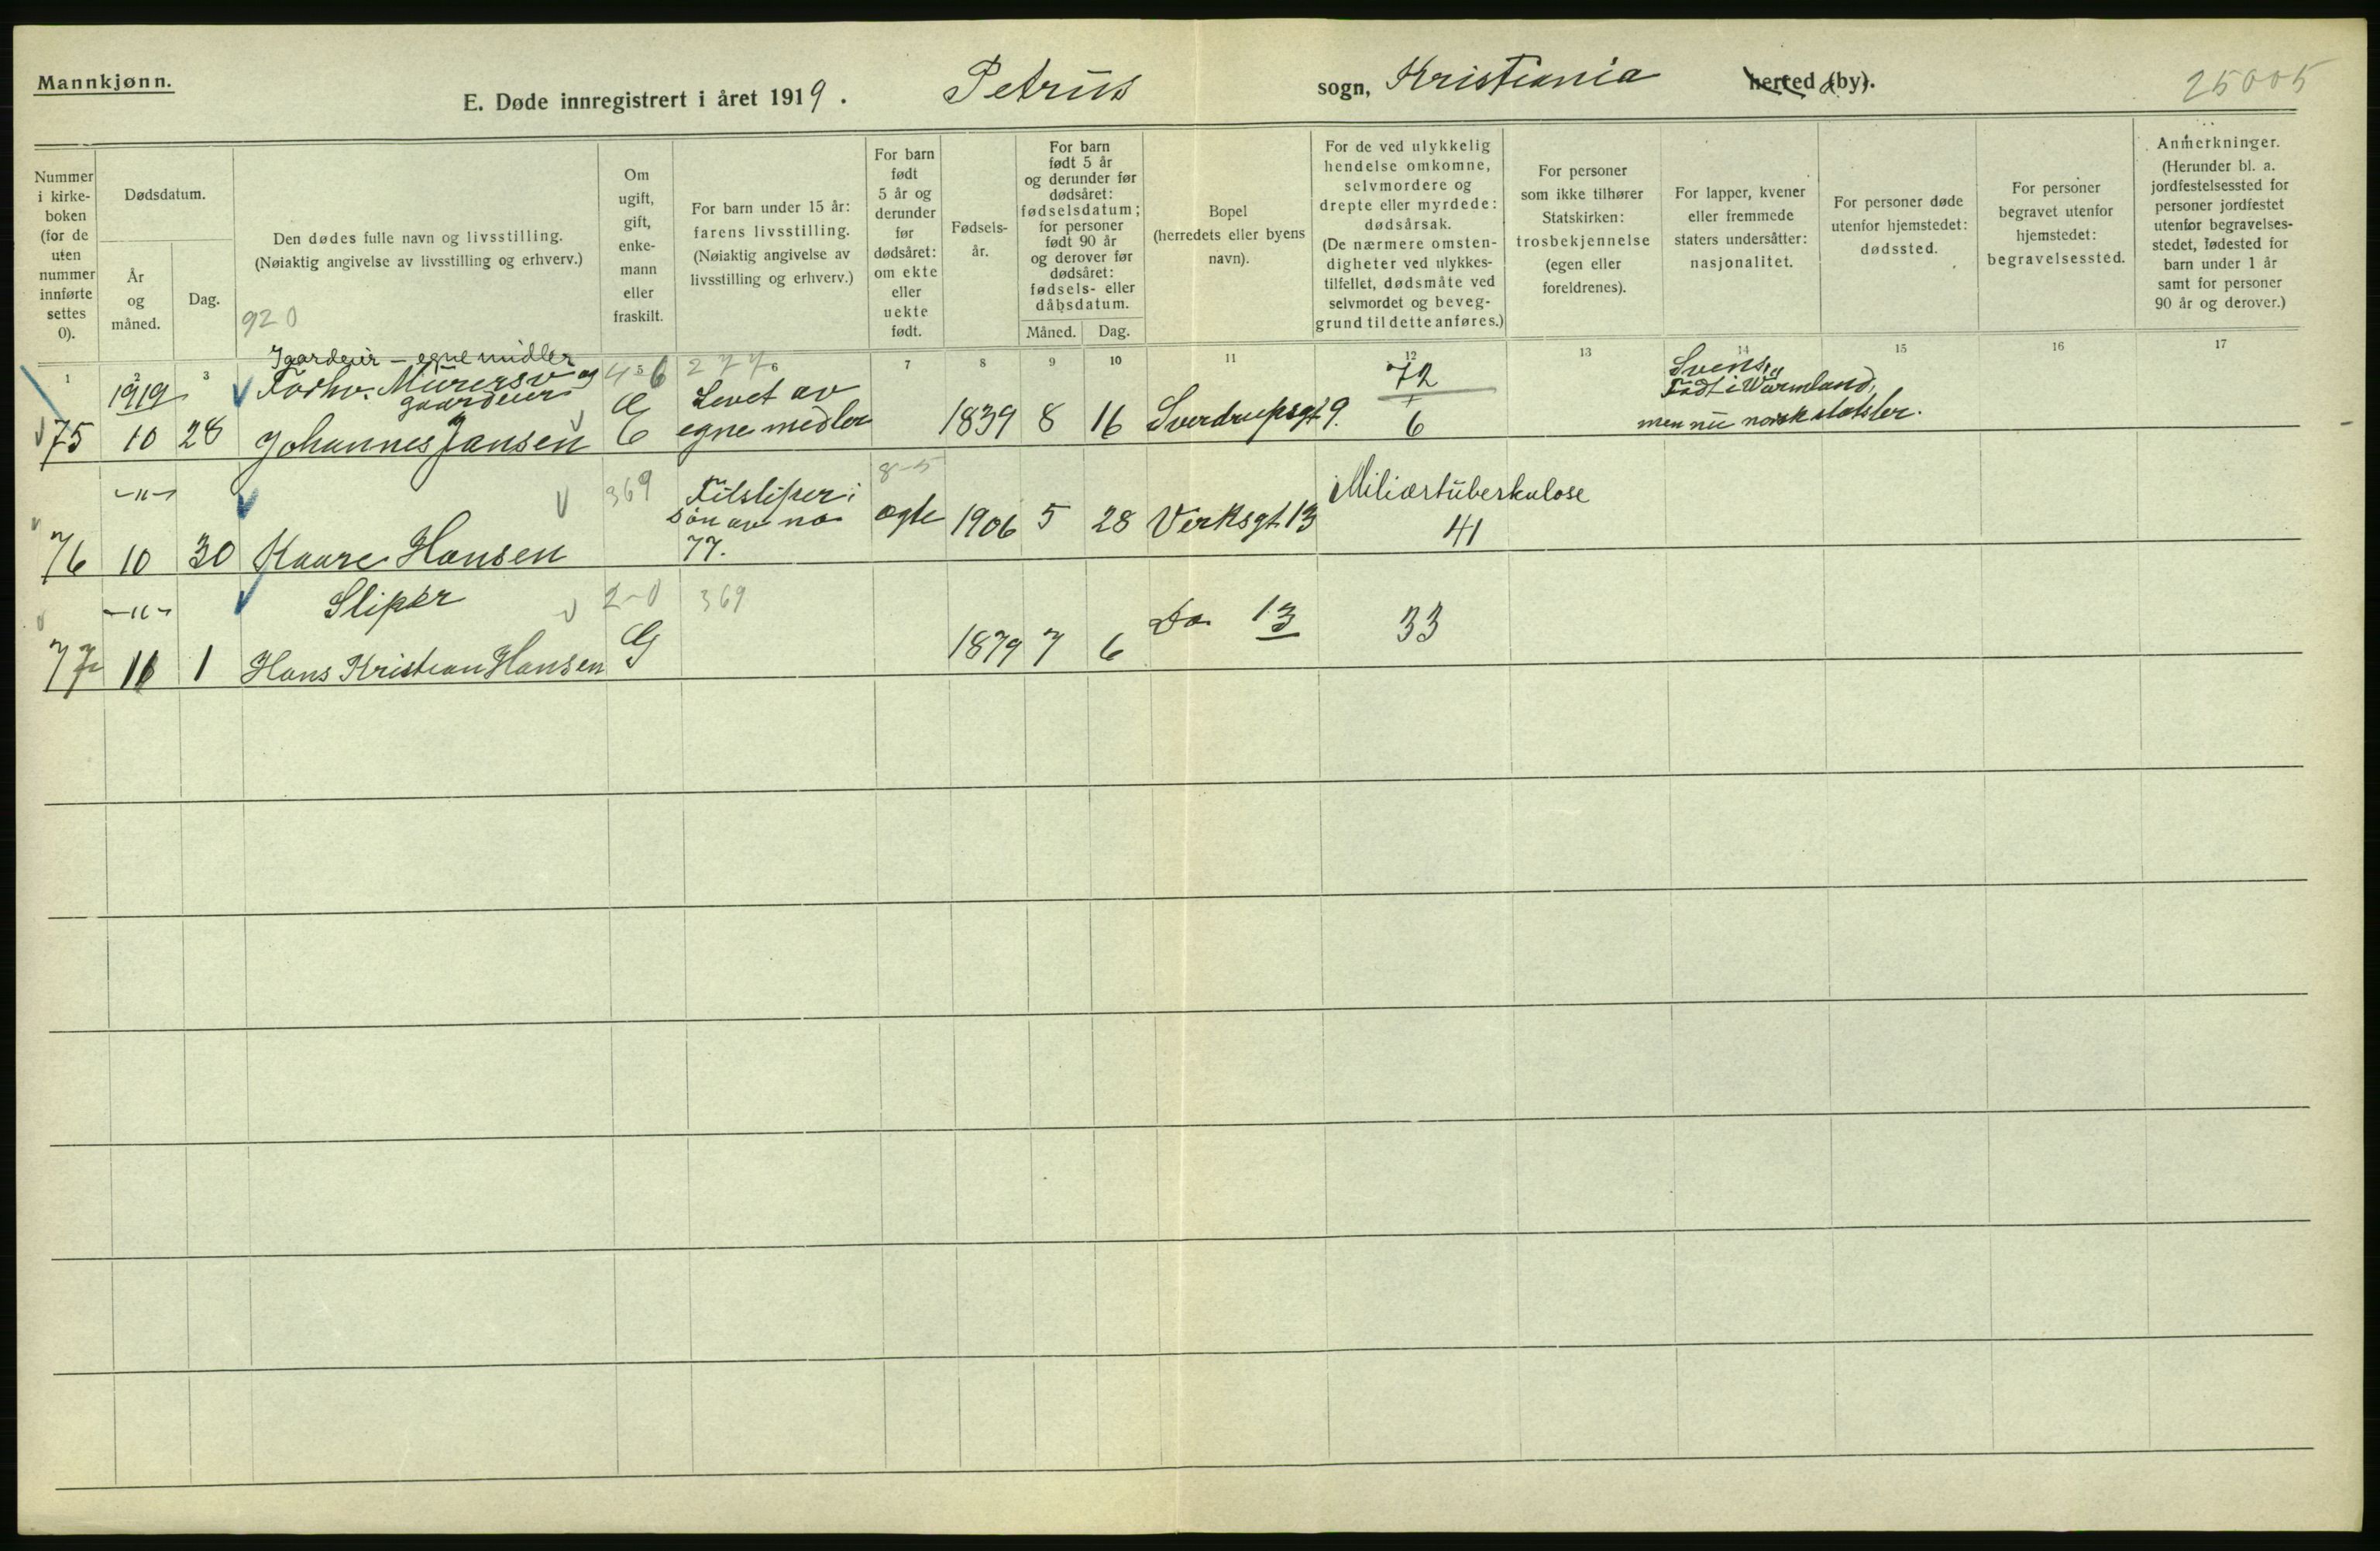 Mannkjønn.
E. Døde innregistrert i året 1919. Petrus sogn, Kristiania herred (by).
25005
Nummer i kirkeboken (for de uten nummer innførte settes 0).
Dødsdatum.
År og måned.
Dag.
Den dødes fulle navn og livsstilling.
(Nøiaktig angivelse av livsstilling og erhverv.)
920
Om ugift, gift, enkemann eller fraskilt.
For barn under 15 år: farens livsstilling.
(Nøiaktig angivelse av livsstilling og erhverv.)
For barn født 5 år og derunder før dødsåret: om ekte eller uekte født.
Fødselsår.
For barn født 5 år og derunder før dødsåret: fødselsdatum; for personer født 90 år og derover før dødsåret: fødsels- eller dåbsdatum.
Måned.
Dag.
Bopel
(herredets eller byens navn).
For de ved ulykkelig hendelse omkomne, selvmordere og drepte eller myrdede: dødsårsak.
(De nærmere omstendigheter ved ulykkestilfellet, dødsmåte ved selvmordet og beveggrund til dette anføres.)
For personer som ikke tilhører Statskirken: trosbekjennelse (egen eller foreldrenes).
For lapper, kvener eller fremmede staters undersåtter: nasjonalitet.
For personer døde utenfor hjemstedet: dødssted.
For personer begravet utenfor hjemstedet: begravelsessted.
Anmerkninger.
(Herunder bl. a. jordfestelsessted for personer jordfestet utenfor begravelsesstedet, fødested for barn under 1 år samt for personer 90 år og derover.)
1 2 3 5 6 7 8 9 10 11 12 13 14 15 16 17
gaardeier - egne midler
1919 Forhv. Murersv og 4 6 277 72 Svensk,
gaardeier G Levet av Født i Warmland,
75 10 28 Johannes Jansen egne medler 1839 8 16 Sverdrupsgt 9. 6 men nu norsk statsbr.
-"- 369 Filsliper i 8-5 Miliærtuberkulose
søn av no ægte 1906 5 28 Verksgt. 13 41
76 10 30 Kaare Hansen 77.
-"- Sliper 2-0 369 Do 13 33
77 11 1 Hans Kristian Hansen G 1879 7 6